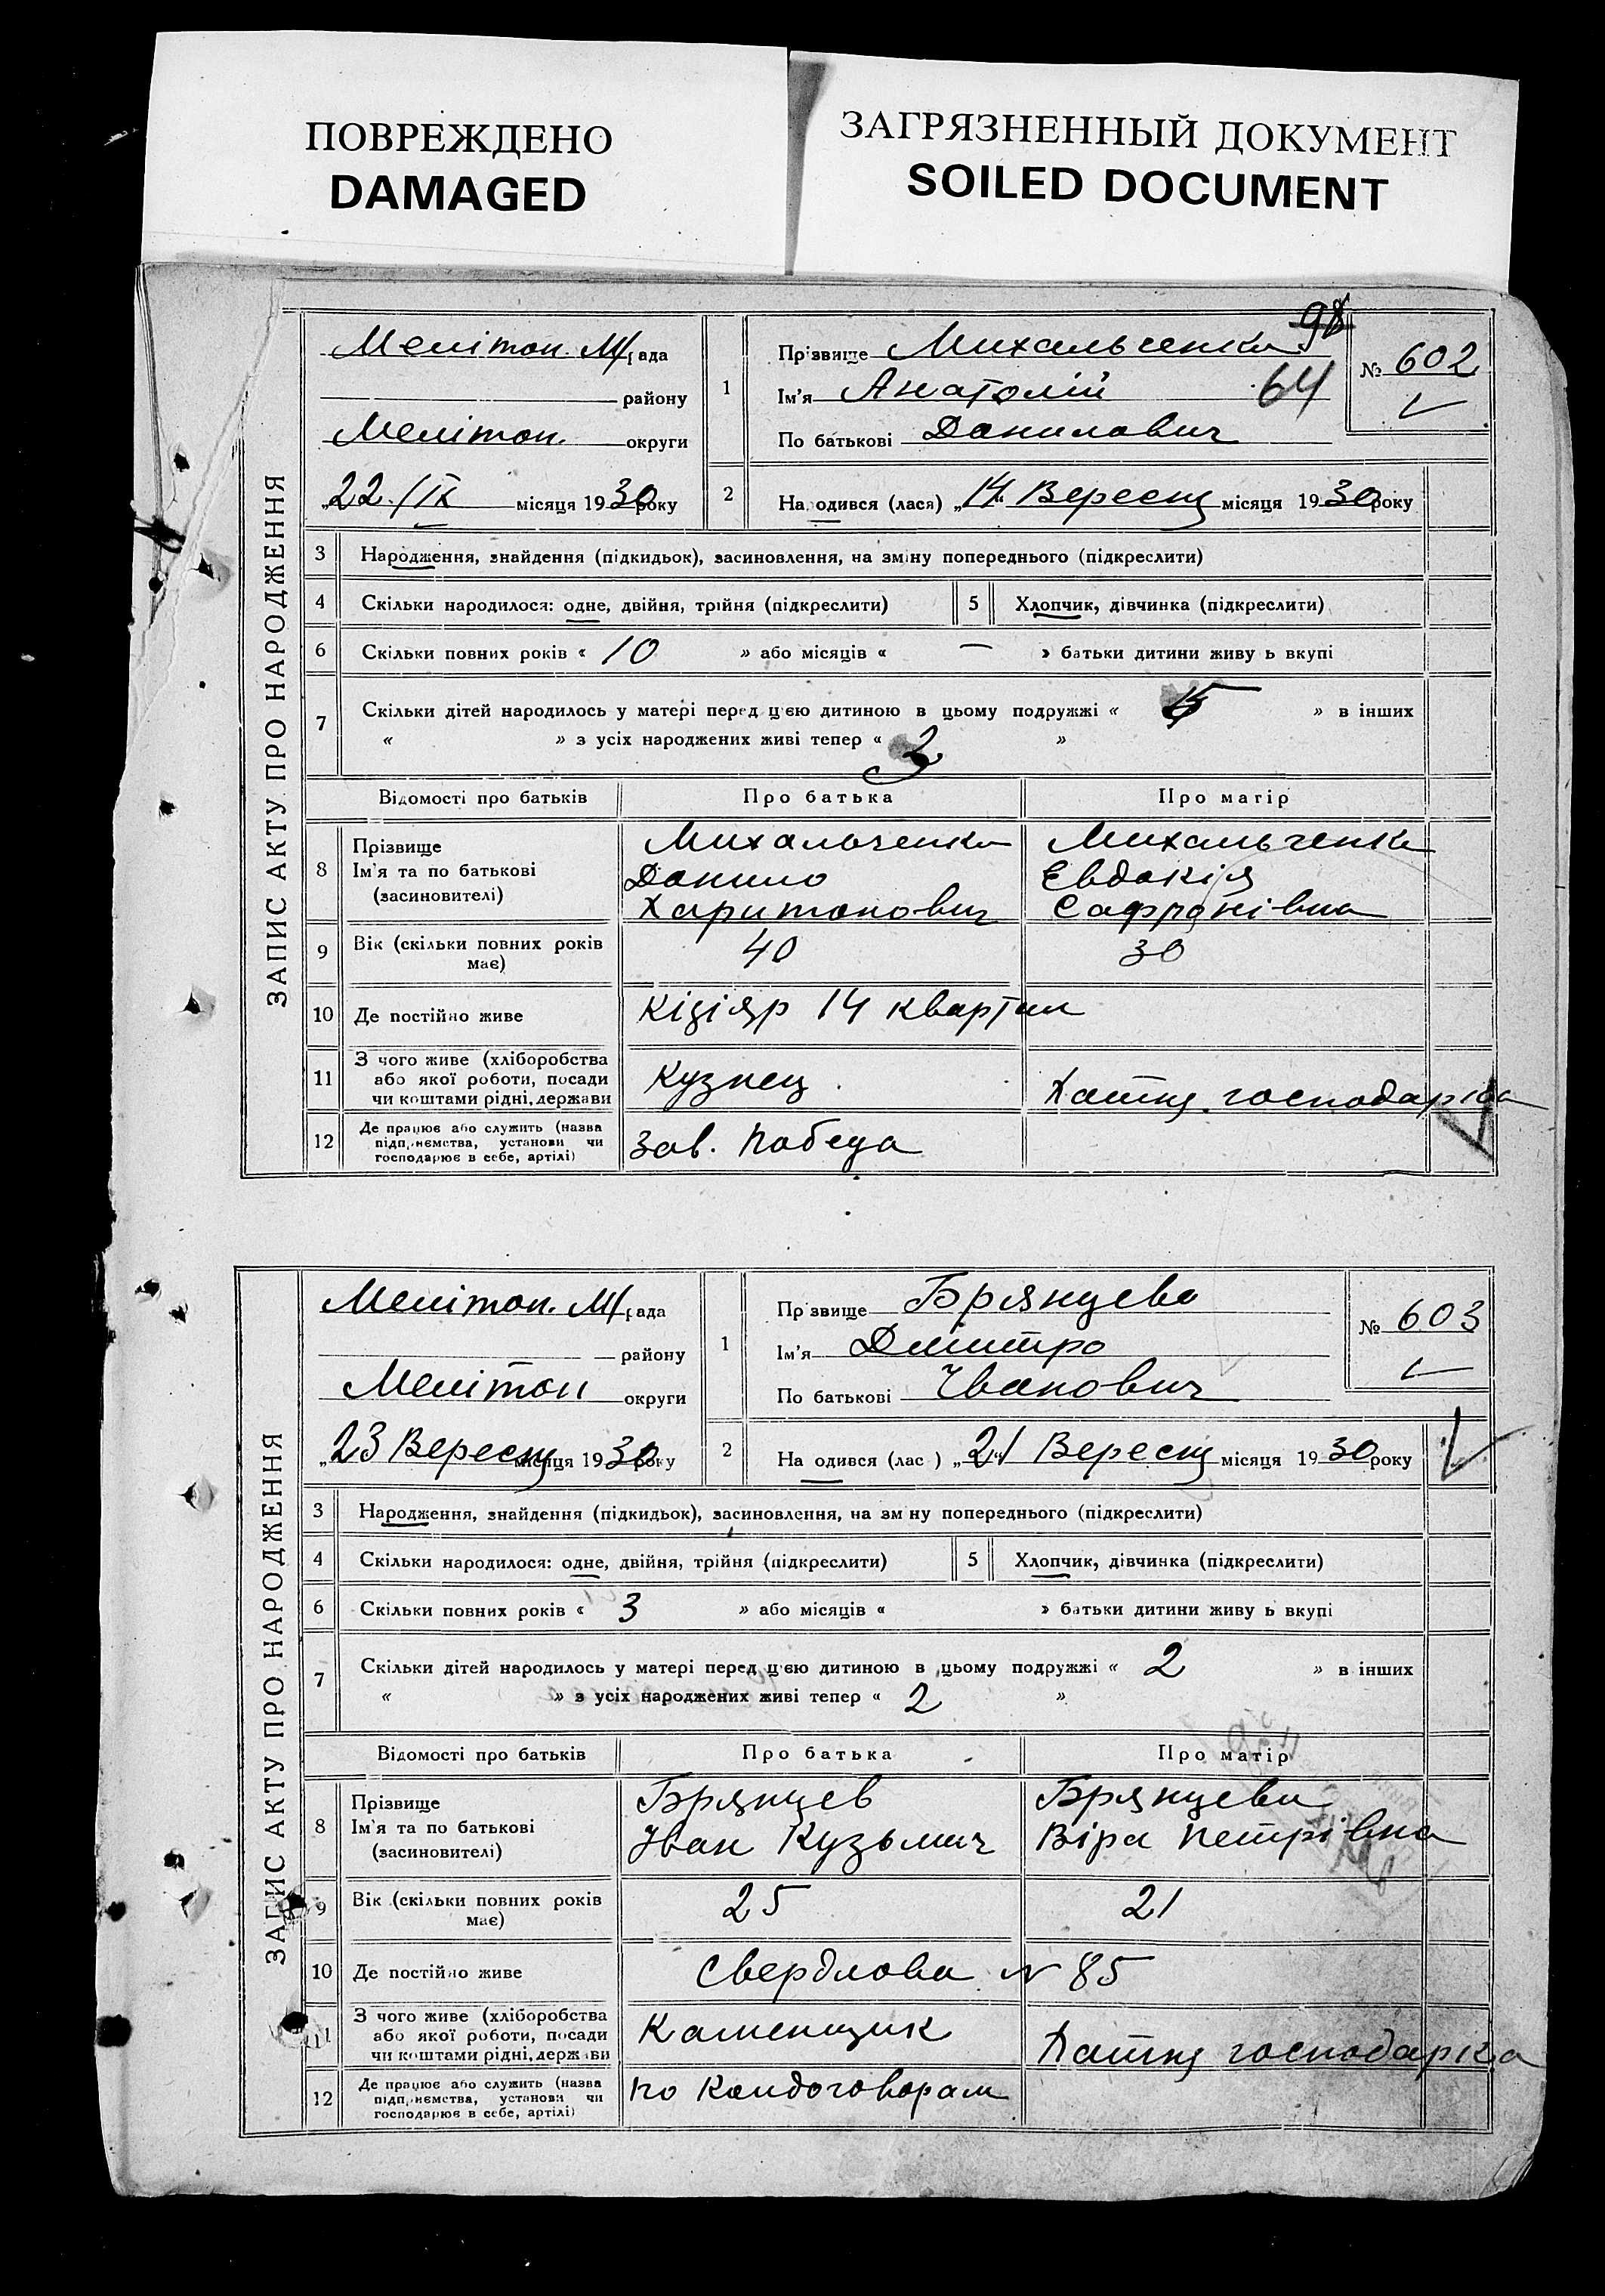 ПОВРЕЖДЕНО
DAMAGED
ЗАГРЯЗНЕННЫЙ ДОКУМЕНТ
SOILED DOCUMENT
ЗАПИС АКТУ ПРО НАРОДЖЕННЯ
Мелітоп. М/рада
району
Мелітоп. округи
„22/IX місяця 1930 року
1 Прізвище Михальченко
98
64
Ім'я Анатолій
По батькові Данилович
№ 602
2 Народився (лася) „14" Вересня місяця 1930 року
3 Народження, знайдення (підкидьок), засиновлення, на зміну попереднього (підкреслити)
4 Скільки народилося: одне, двійня, трійня (підкреслити) 5 Хлопчик, дівчинка (підкреслити)
6 Скільки повних років « 10 » або місяців « — » батьки дитини живу ь вкупі
7 Скільки дітей народилось у матері перед цією дитиною в цьому подружжі « » в інших
« » з усіх народжених живі тепер « 3 »
Відомості про батьків Про батька Про матір
8 Прізвище
Ім'я та по батькові
(засиновителі)
Михальченко
Данило
Харитонович
Михальченко
Евдокія
Сафронівна
9 Вік (скільки повних років має) 40 30
10 Де постійно живе Кізіяр 14 квартал
11 З чого живе (хліборобства
або якої роботи, посади
чи коштами рідні, держави
Кузнец
Хатня господарка
12 Де працює або служить (назва
підприємства, установи чи
господарює в себе, артілі)
Зав. Победа
ЗАПИС АКТУ ПРО НАРОДЖЕННЯ
Мелітоп. М/рада
району
Мелітоп округи
„23 Вересня місяця 1930 року
1 Пр звище Брянцев
Ім'я Дмитро
По батькові Іванович
№ 603
2 На одився (лас ) „21" Вересня місяця 1930 року
3 Народження, знайдення (підкидьок), засиновлення, на зм ну попереднього (підкреслити)
4 Скільки народилося: одне, двійня, трійня (підкреслити) 5 Хлопчик, дівчинка (підкреслити)
6 Скільки повних років « 3 » або місяців « » батьки дитини живу ь вкупі
7 Скільки дітей народилось у матері перед цією дитиною в цьому подружжі « 2 » в інших
« » з усіх народжених живі тепер « 2 »
Відомості про батьків Про батька Про матір
8 Прізвище
Ім'я та по батькові
(засиновителі)
Брянцев
Іван Кузьмич
Брянцева
Віра Петрівна
9 Вік (скільки повних років має) 25 21
10 Де постійно живе Свердлова N 85
11 З чого живе (хліборобства
або якої роботи, посади
чи коштами рідні, держави
Каменщик
Хатня господарка
12 Де працює або служить (назва
підприємства, установи чи
господарює в себе, артілі)
по Кондоговорам